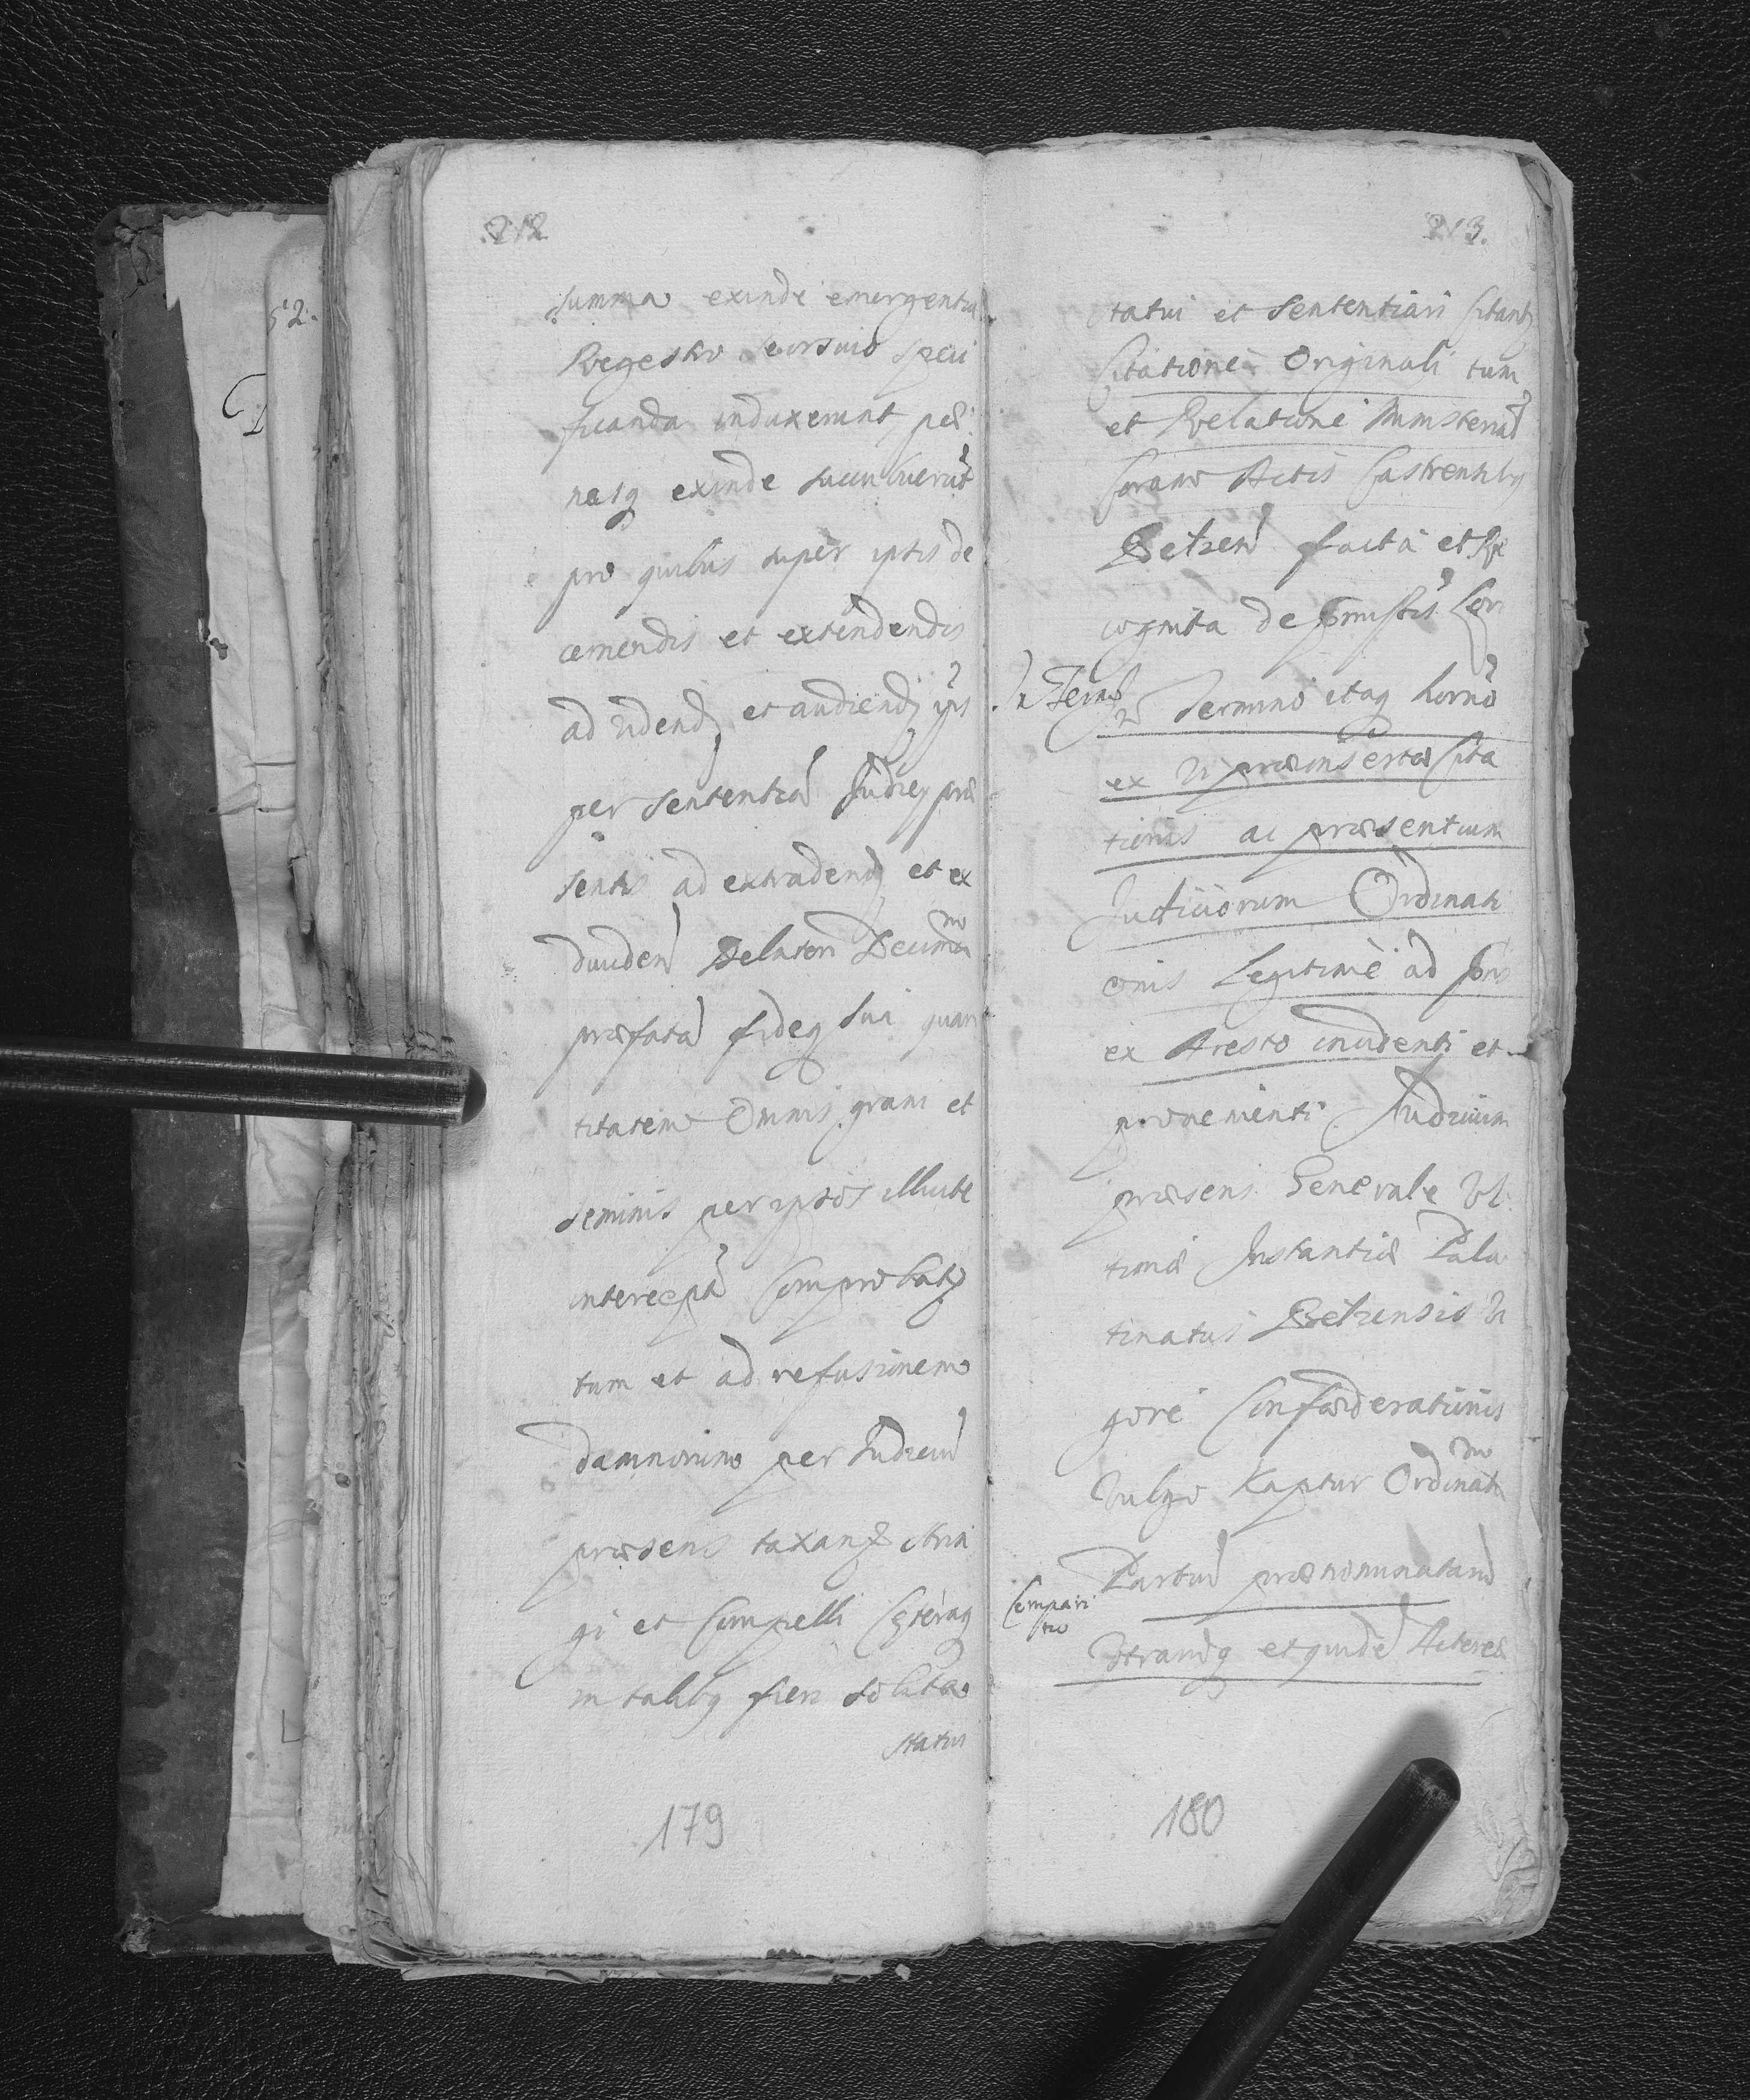 212
summa exinde emergentia
Regestro seorsivo speci
ficanda induxerunt pæ
nasq exinde succubuerut
pro quibus super ipsis de
cernendis et extendendis
ad vidend et audiend ips
per sententia Judicy præ
sentis ad extradend et ex
dividen Delatori Decima
no
præfata fideq sui quan
titatem Omnis grani et
seminis per ipsos illicite
intercepta comprobat
tum et ad refusionem
damnorum per Judiciu
præsens taxand stri
gi et Compelli Cæteraq
in talibq fieri solita
statui
179
213.
statui et sententiari Citant
Citatione Originali tum
et Relatione Ministerial
Coram Actis Castrensibq
Belzen facta et Re
cognita
In Term
In Termino itaq horno
ex Vi præinsertæ Cita
tionis ac præsentium
Judiciorum Ordinati
onis Legitime ad
ex Aresto incidenti et
provenienti Judicium
præsens Generale Vl
timæ Instantiæ Pala
tinatus Belzensis Vi
gore Confœderationis
Vulgo Kaptur Ordinat
Partiu prænominataru
Compari
tio
Vtramq et quide Actorea
180
52.